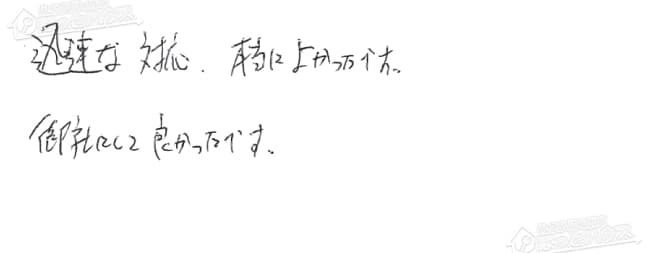 迅速な対応、本当によかったです。
御社にして良かったです。